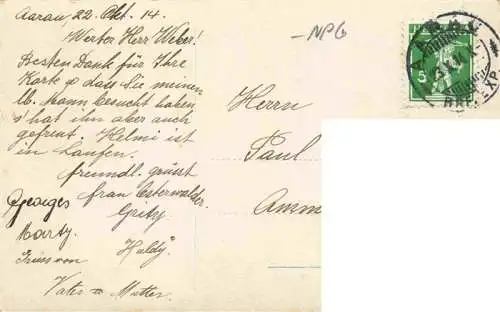 Aarau, 22. Okt. 14.
Werter Herr Weber!
Besten Dank für Ihre
Karte & dass Sie meinen
lb. Mann besucht haben,
s' hat ihn aber auch
gefreut. Helmi ist
in Laufen.
freundl. grüsst
frau Osterwalder.
Grety
Georges
Marty.
Grüss von Huldy
Vater & Mutter
-NPG
Herrn
Paul
Amm
5
BRF. EXP.